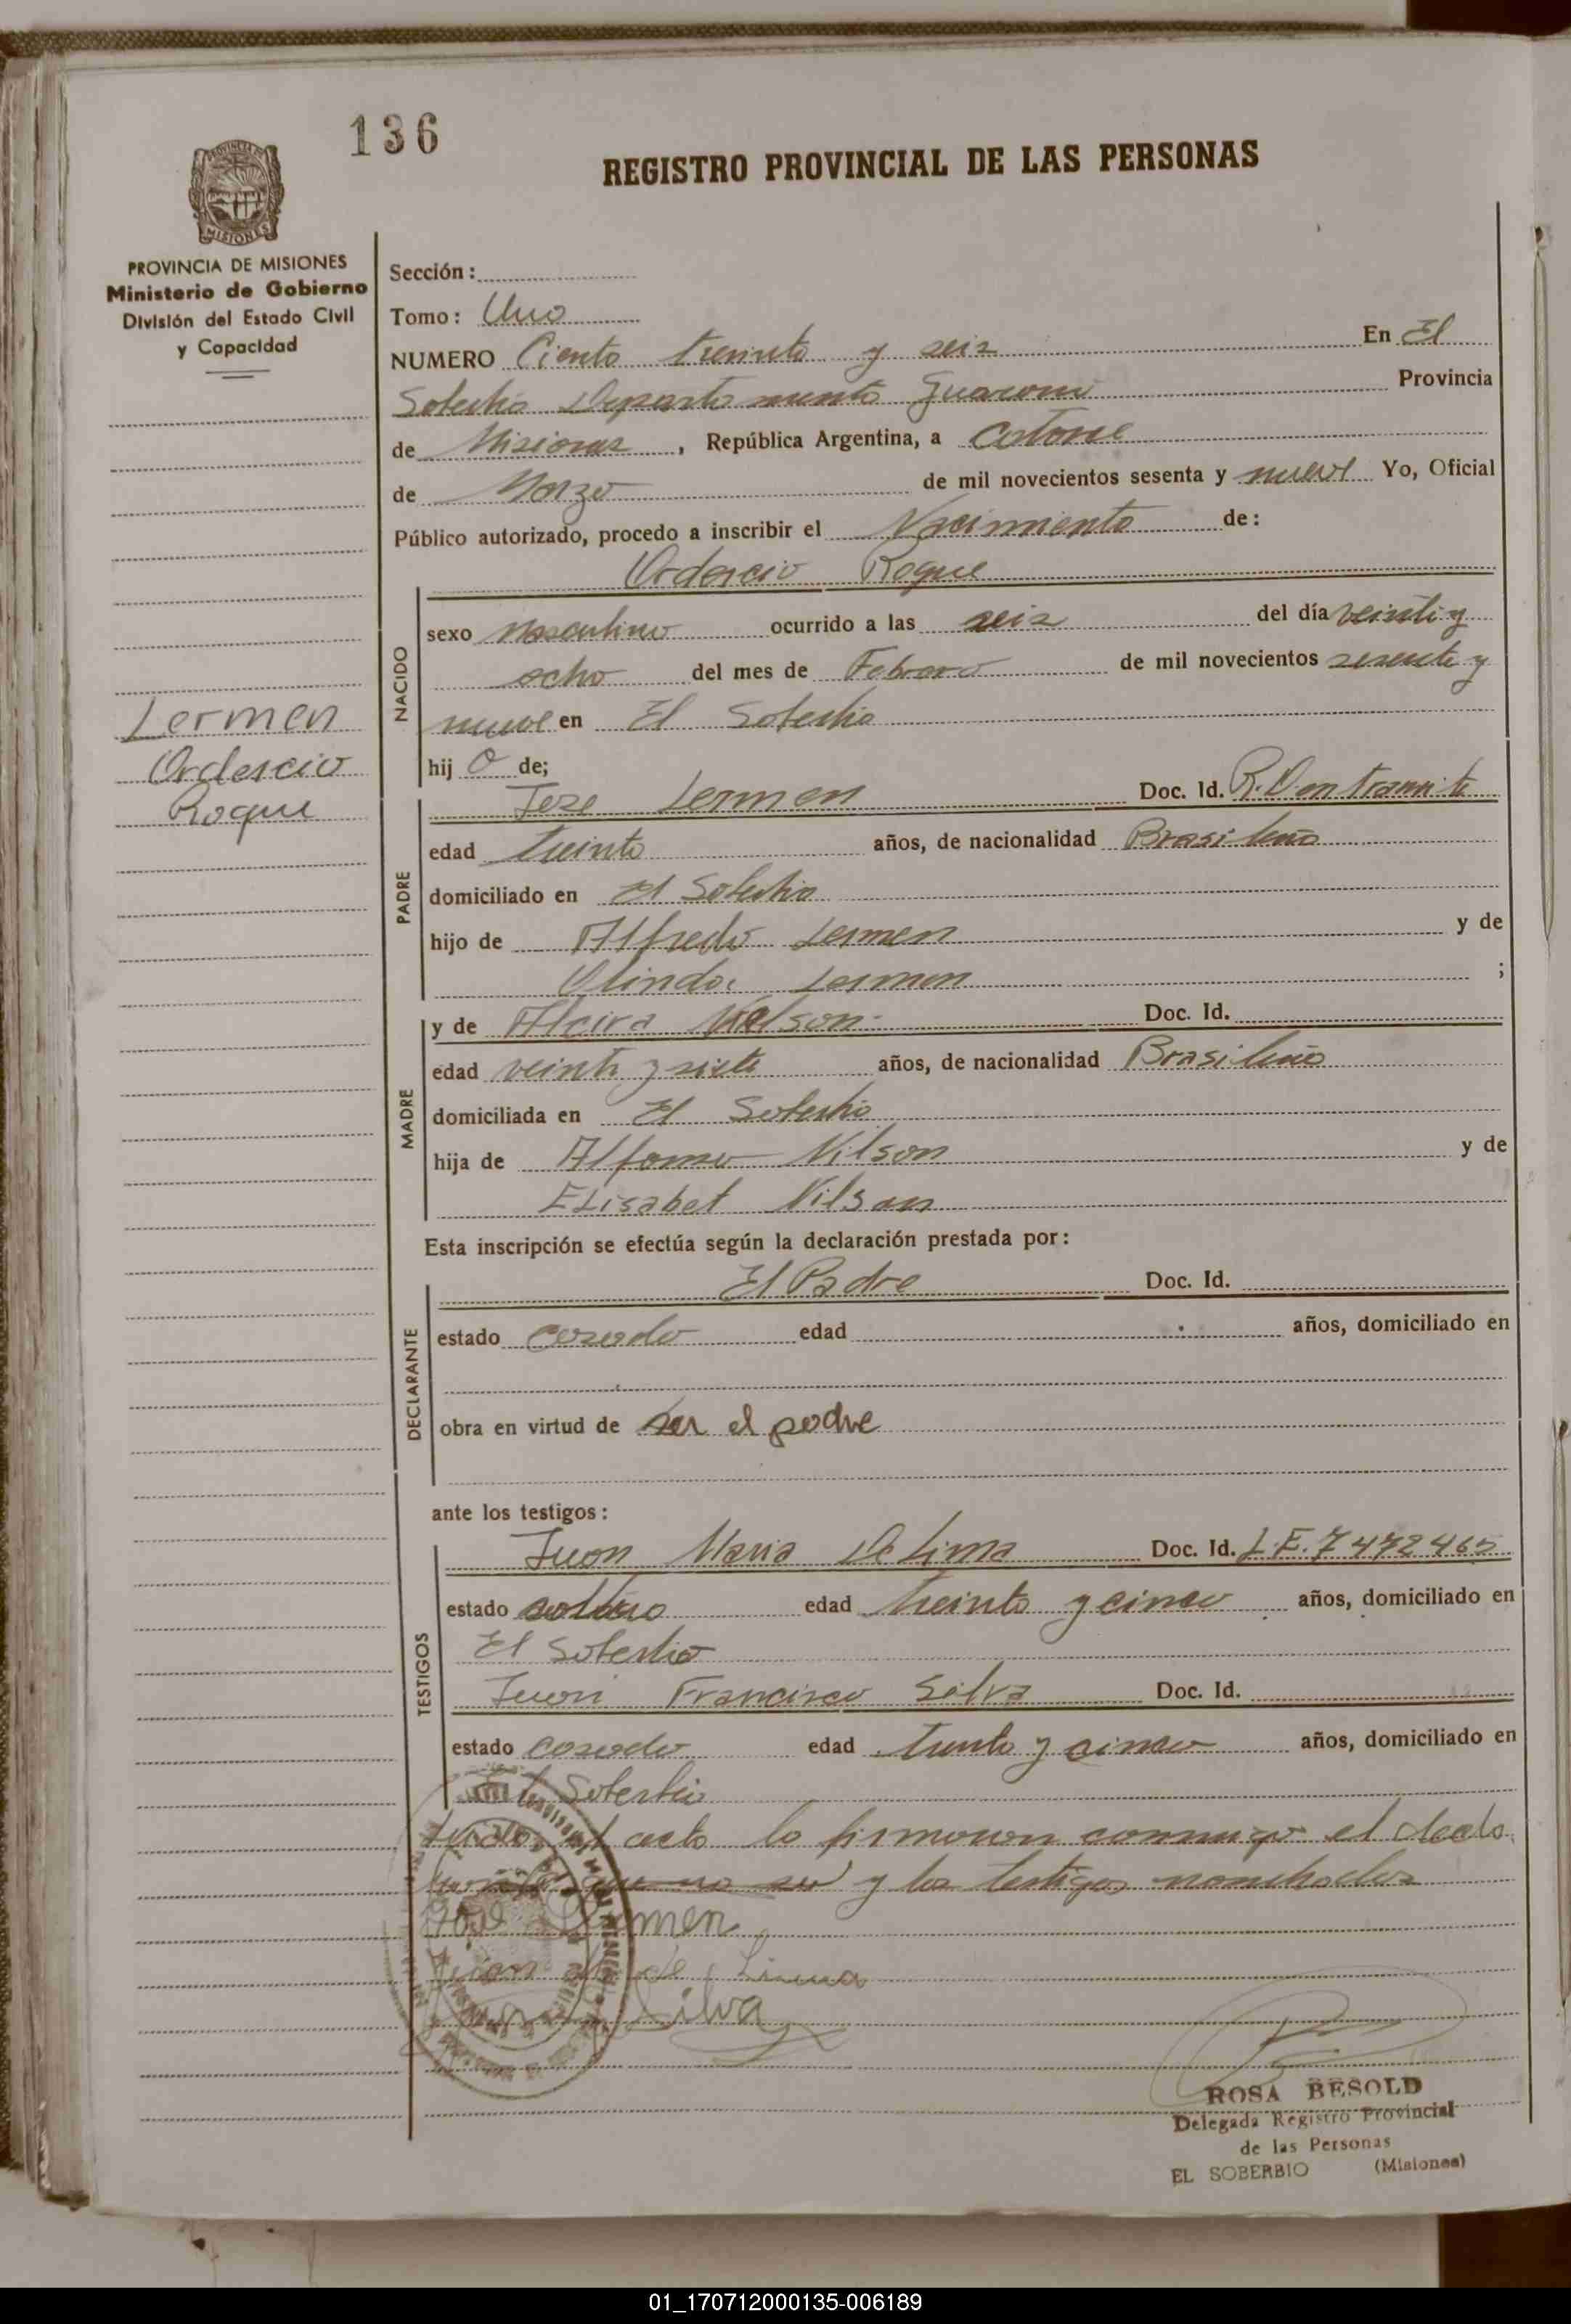 136
REGISTRO PROVINCIAL DE LAS PERSONAS
PROVINCIA DE
MISIONES
PROVINCIA DE MISIONES
Ministerio de Gobierno
División del Estado Civil
y Capacidad
Sección:
Tomo: Uno
NUMERO Ciento treinta y seis En El
Soberbio Departamento Guarani Provincia
de Misiones, República Argentina, a Catorce
de Marzo de mil novecientos sesenta y nueve Yo, Oficial
Público autorizado, procedo a inscribir el Nacimiento de:
Ordercio Roque
NACIDO
sexo Masculino ocurrido a las seis del día veinti y
ocho del mes de Febrero de mil novecientos sesenta y
nueve en El Soberbio
hij o de;
Lermen
Ordercio
Roque
PADRE
Jose Lermen Doc. Id. R. D en tramite
edad treinta años, de nacionalidad Brasileño
domiciliado en El Soberbio
hijo de Alfredo Lermen y de
Olinda Lermen ;
MADRE
y de Alcira Nelson Doc. Id.
edad veinti y siete años, de nacionalidad Brasileño
domiciliada en El Soberbio
hija de Alfonso Nilson y de
Elisabet Nilson
Esta inscripción se efectúa según la declaración prestada por:
DECLARANTE
El Padre Doc. Id.
estado casado edad años, domiciliado en
obra en virtud de ser el padre
ante los testigos:
TESTIGOS
Juan Maria De Lima Doc. Id. L.E. 7472465
estado soltero edad treinta y cinco años, domiciliado en
El Soberbio
Juan Francisco Silva Doc. Id.
estado casado edad treinta y cinco años, domiciliado en
El Soberbio
el acta lo firmaron conmigo el decla
que no su y los testigos nombrados
Jose Lermen
Juan M de Lima
Silva
ROSA BESOLD
Delegada Registro Provincial
de las Personas
EL SOBERBIO (Misiones)
01_170712000135-006189